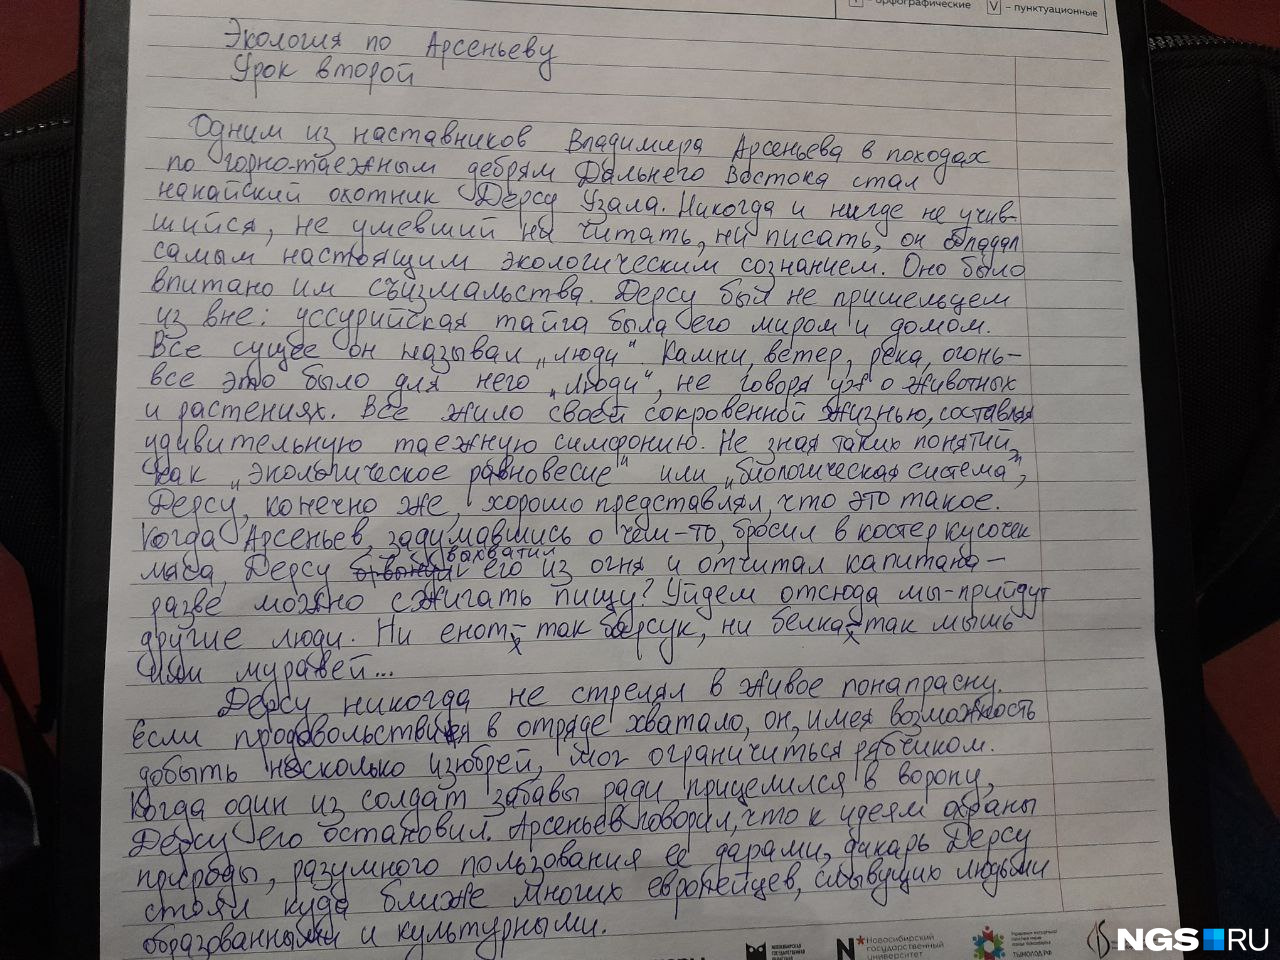 – орфографические V – пунктуационные
Экология по Арсеньеву
Урок второй
Одним из наставников Владимира Арсеньева в походах
по горно-таежным дебрям Дальнего Востока стал
нанайский охотник Дерсу Узала. Никогда и нигде не учив-
шийся, не умевший ни читать, ни писать, он обладал
самым настоящим экологическим сознанием. Оно было
впитано им съизмальства. Дерсу был не пришельцем
из вне: уссурийская тайга была его миром и домом.
Все сущее он называл „люди" Камни, ветер, река, огонь–
все это было для него „люди", не говоря уж о животных
и растениях. Все жило своей сокровенной жизнью, составляя
удивительную таежную симфонию. Не зная таких понятий,
как „экологическое равновесие" или „биологическая система",
Дерсу, конечно же, хорошо представлял, что это такое.
Когда Арсеньев, задумавшись о чем-то, бросил в костер кусочек
мяса, Дерсу выхватил его из огня и отчитал капитана–
разве можно сжигать пищу? Уйдем отсюда мы-прийдут
другие люди. Ни енот– так барсук, ни белка–так мышь
или муравей...
Дерсу никогда не стрелял в живое понапрасну.
Если продовольствия в отряде хватало, он, имея возможность
добыть несколько изюбрей, мог ограничиться рябчиком.
Когда один из солдат забавы ради прицелился в ворону,
Дерсу его остановил. Арсеньев говорил, что к идеям охраны
природы, разумного пользования ее дарами, дикарь Дерсу
стоял куда ближе многих европейцев, слывущих людьми
образованными и культурными.
Новосибирский
государственный
университет
ТЫМОЛОД.РФ
NGS RU